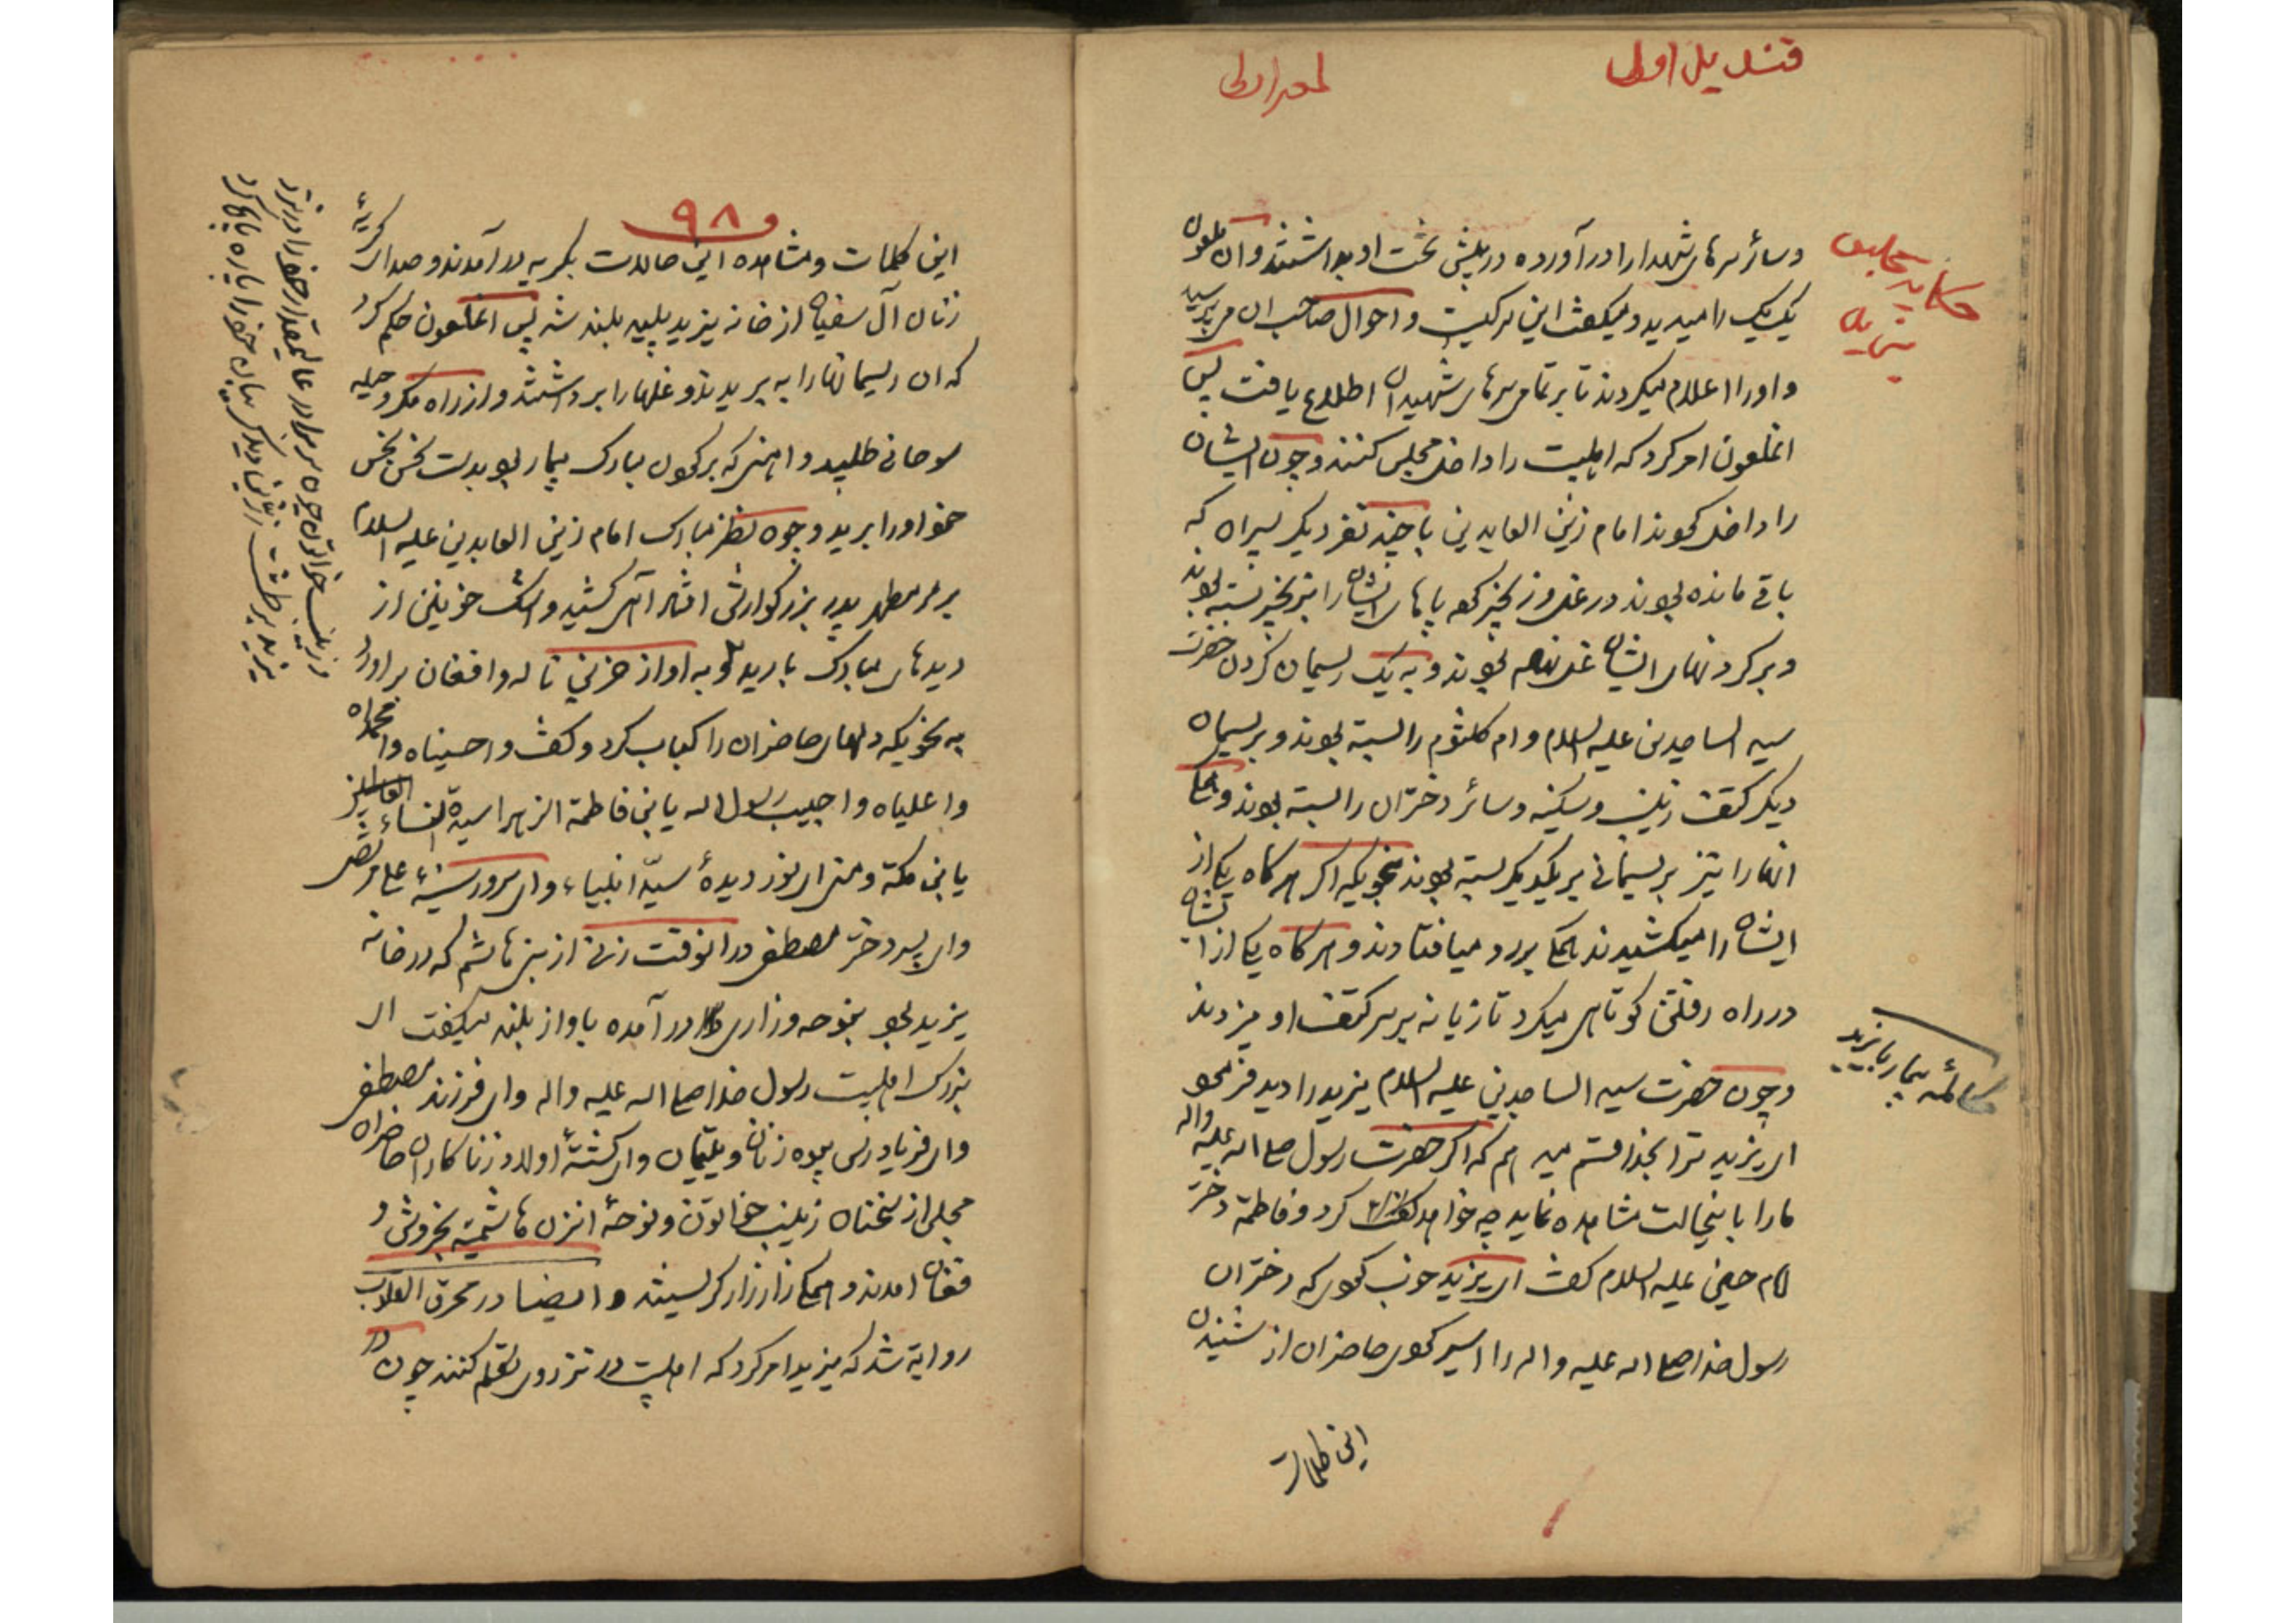 قندیل اول
لمعه اولی
حکایت مجلس
یزید
وسائر سرهای شهدارا درآورده در پیش تخت او بداشتند وان ملعون
یک یک را میدید و میگفت این سر کیست و احوال صاحب ان میپرسید
و اورا اعلام میکردند تا بر تمامی سرهای شهیدان اطلاع یافت پس
انملعون امر کرد که اهلبیت را داخل مجلس کنند و چون ایشان
را داخل نمودند امام زین العابدین با چند نفر دیگر پسران که
باقی مانده بودند در غل و زنجیر نموده پاهای ایشان را بزنجیر بسته بودند
و بر گردنهای ایشان غل نهاده بودند و به یک ریسمان گردن حضرت
سید الساجدین علیه السلام و ام کلثوم را بسته بودند و بریسمان
دیگر کتف زینب و سکینه و سائر دختران را بسته بودند و همگی
انهارا نیز بریسمانی بریکدیگر بسته بودند بنحویکه اگر هرگاه یکی از
ایشان را میکشیدند همگی برو میافتادند و هرگاه یکی از ایشان
در راه رفتن کوتاهی میکرد تازیانه بر سر کتف او میزدند
و چون حضرت سید الساجدین علیه السلام یزید را دید فرمود
ای یزید ترا بخدا قسم میدهم که اگر حضرت رسول صلی اله علیه واله
مارا باینحالت مشاهده نماید چه خواهد کرد و فاطمه دختر
امام حسین علیه السلام گفت ای یزید خوب نمودی که دختران
رسول خدا صلی اله علیه و اله را اسیر نمودی حاضران از شنیدن
این کلمات
مکالمه بیمار با یزید
۹۸
این کلمات و مشاهده این حالت بگریه درآمدند و صدای گریۀ
زنان آل سفیان از خانه یزید پلید بلند شد پس انملعون حکم کرد
که ان ریسمانهارا به بریدند و غلهارا برداشتند و از راه مکر و حیله
سوهانی طلبید و اهنی که بر گردن مبارک بیمار بود بدست نحس نجس
خود اورا برید و چون نظر مبارک امام زین العابدین علیه السلام
بر سر مطهر پدر بزرگوارش افتاد آهی کشید و اشک خونین از
دیدهای مبارک بارید و به اواز حزین ناله وافغان براورد
به نحویکه دلهای حاضران را کباب کرد و گفت واحسیناه وامحمداه
واعلیاه واحبیب رسول اله یابن فاطمة الزهرا سیدة النساء العالمین
یابن مکة و منی ای نور دیدۀ سیّد انبیاء و ای سرور سینۀ علی مرتضی
و ای پسر دختر مصطفی درانوقت زنی از بنی هاشم که در خانه
یزید بود بنوحه و زاری درآمده باواز بلند میگفت ای
بزرگ اهلبیت رسول خدا صلی اله علیه واله وای فرزند مصطفی
وای فریادرس بیوه زنان و یتیمان وای کشتۀ اولاد زناکاران حاضران
مجلس از سخنان زینب خواتون و نوحۀ انزن هاشمیّه بخروش و
فغان امدند و همگی زار زار گریستند و ایضا در محرق القلوب
روایة شد که یزید امر کرد که اهلبیت در نزد وی تکلم کنند چون در